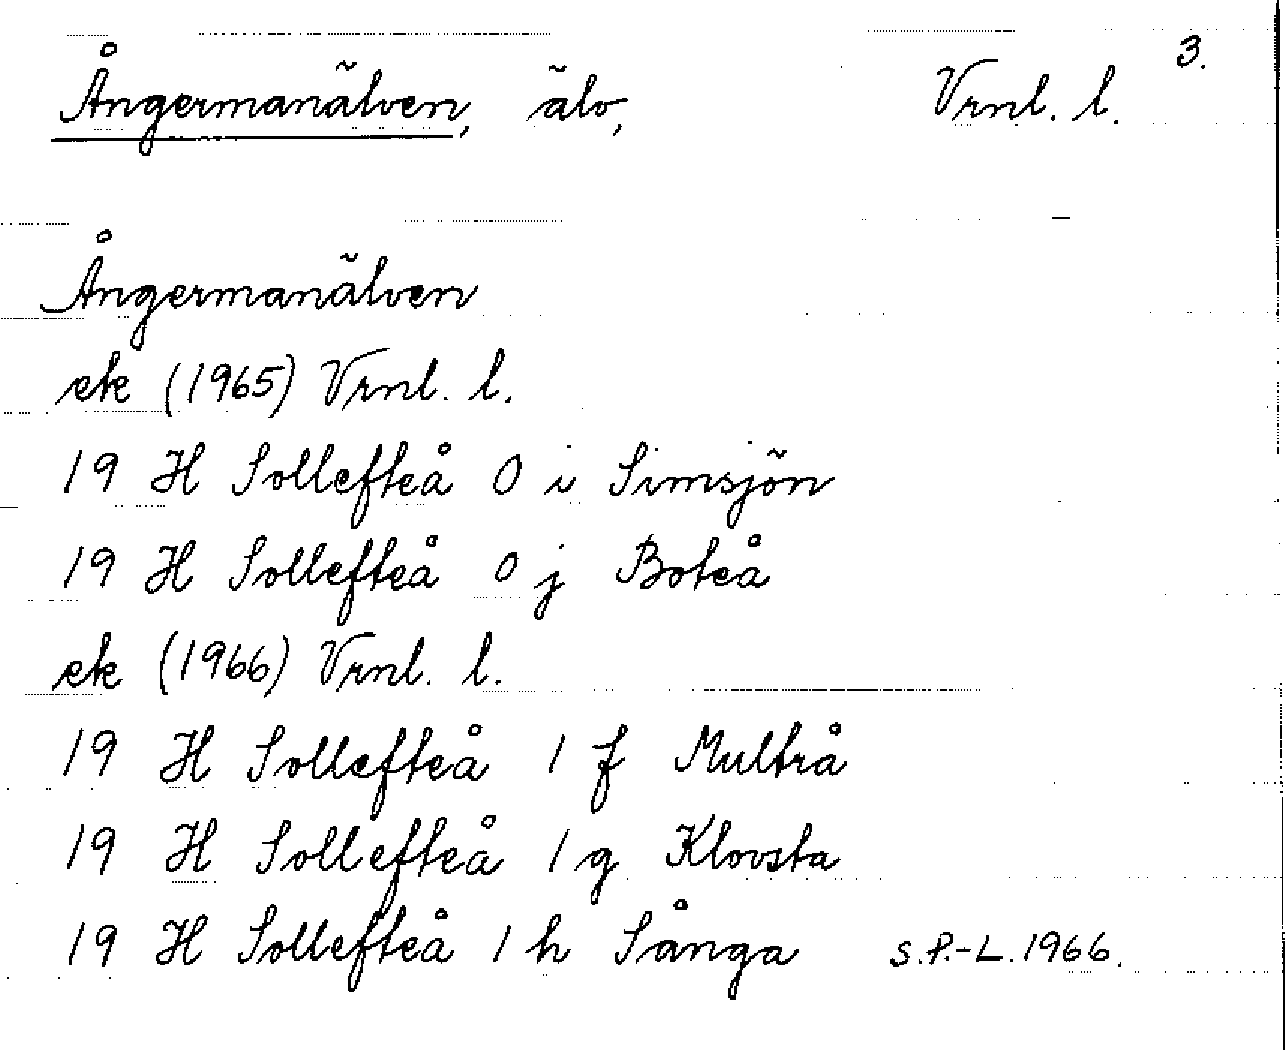 3.
Ångermanälven, älv, Vrnl. l.
Ångermanälven
ek (1965) Vrnl. l.
19 H Sollefteå 0 i Simsjön
19 H Sollefteå 0 j Boteå
ek (1966) Vrnl. l.
19 H Sollefteå 1 f Multrå
19 H Sollefteå 1 g Klovsta
19 H Sollefteå 1 h Sånga S.P.-L. 1966.